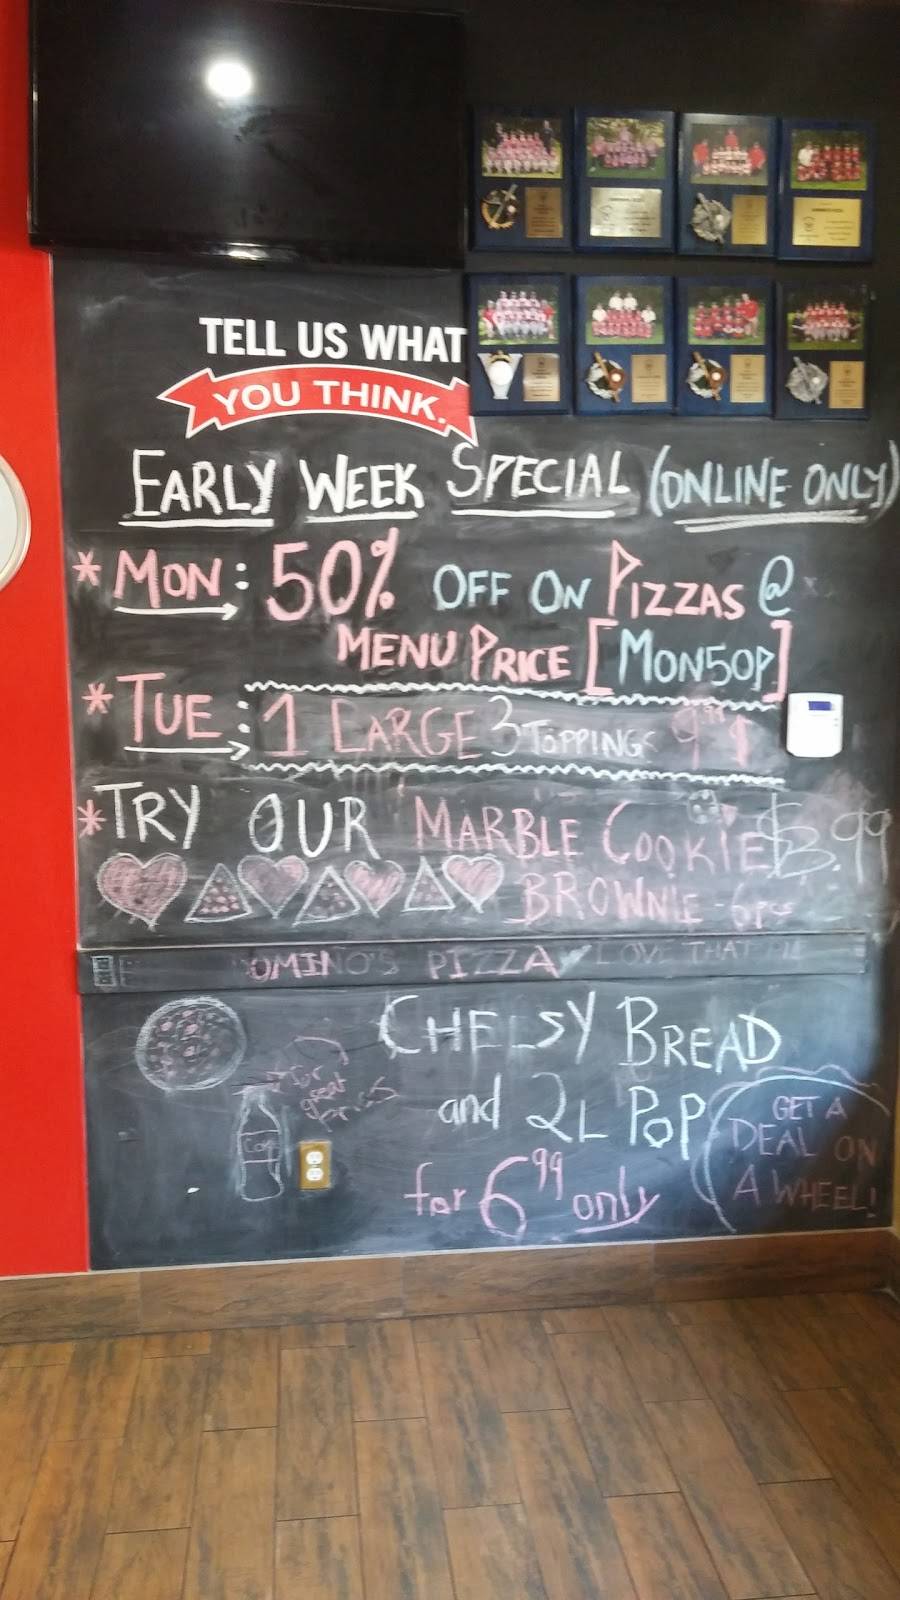 TELL US WHAT
YOU THINK.
EARLY WEEK SPECIAL (ONLINE ONLY)
* MON: 50% OFF ON PIZZAS @
MENU PRICE [MON50P]
* TUE: 1 LARGE 3 TOPPING
* TRY OUR MARBLE COOKIE $3.99
BROWNIE - 6pcs
OMINO'S PIZZA LOVE THAT
CHEESY BREAD
and 2L POP
for 6 99 only
for
great
prices
Coke
GET A
DEAL ON
A WHEEL!